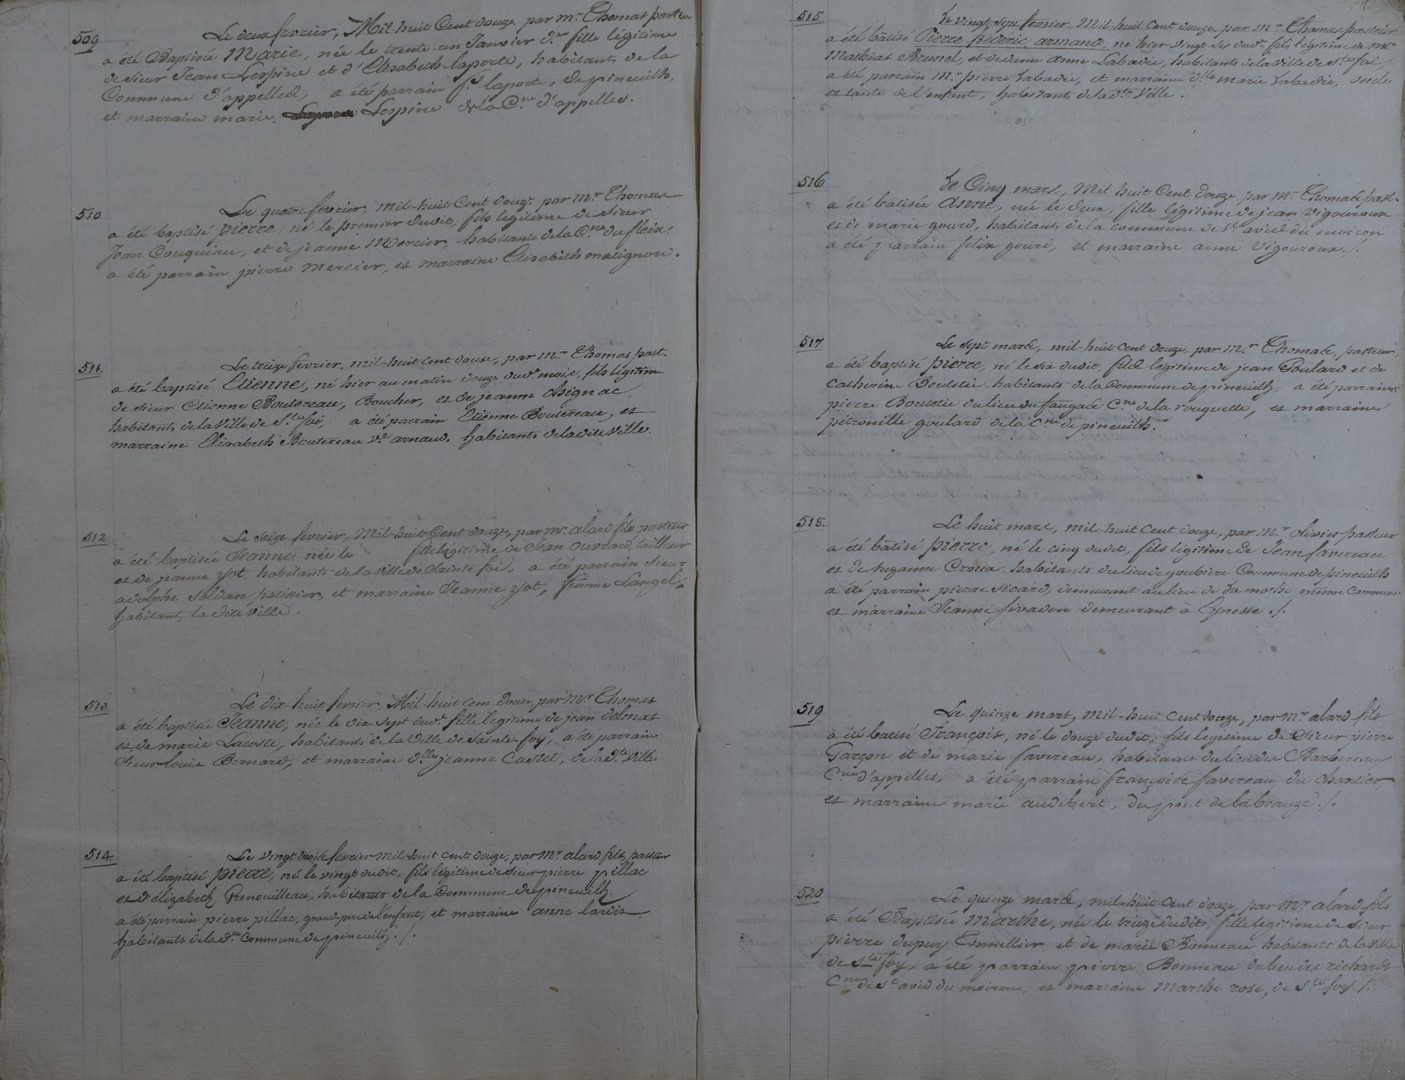 509
Le deux fevrier, Mil huit Cent douze, par mr Thomas pasteur
a été Baptisé Marie, née le trente un Janvier dr fille légitime
de sieur Jean Lespine et d'Elisabeth laporte, habitants de la
Commune d'appelles, a été parrain Sr laporte, de pineuilh
et marraine marie Lespine de la Cne d'appelles.
510
Le quatre fevrier, mil-huit Cent douze par mr Thomas
a été baptisé pierre, né le premier dudit, fils légitime de sieur
Jean Couquiau, et de jeanne Mercier, habitants de la Cne du fleix,
a été parrain pierre Mercier, et marraine Elisabeth matignon.
511
Le treize fevrier, mil-huit cent douze, par mr Thomas past.
a été baptisé Etienne, né hier au matin douze dud. mois, fils légitim
de sieur Etienne Boutereau, Boucher, et de jeanne Guignac
habitants de la Ville de Ste foi, a été parrain Etienne Boutereau, et
marraine Elisabeth Boutereau ve arnaud, habitants de la dite Ville
512
Le seize fevrier, Mil-huit Cent douze, par mr alard fils, pasteur
a été baptisée Jeanne née le fille légitime de Jean ouvrard, tailleur
et de jeanne yot habitants de la Ville de Sainte foi, a été parrain sieur
adolphe soldan, patissier, et marraine Jeanne yot, femme Langel
habitant, la dite Ville.
513
Le dix-huit fevrier, Mil-huit cent douze, par mr Thomas
a été baptisée Jeanne, née le dix sept dud. fille légitime de jean delmas
et de marie Lacoste, habitants de la Ville de Sainte-foy, a été parrain
sieur louis Bernard, et marraine dlle jeanne Castel, de la dte Ville
514
Le vingt trois fevrier mil-huit cent douze, par mr alard fils, pasteur
a été baptisé pierre, né le vingt dudit, fils légitime de sieur pierre pillac
et d'élizabeth Grenouilleau, habitants de la Commune de pineuilh
a été parrain pierre pillac, grand père de l'enfant, et marraine anne lardis
habitants de la dte Commune de pineuilh ./.
515
Le vingt sept fevrier, Mil huit Cent douze, par mr Thomas pasteur
a été batisé Pierre, fréderic, armand, né hier vingt six dud. fils légitime de mr
Mathias Brunel, et de dame anne Labadie, habitants de la Ville de Ste foi,
a été parrain mr pierre Labadie, et marraine dlle marie Labadie, oncle
et tante de l'enfant, habitants de la dte Ville.
516
Le Cinq mars, Mil huit Cent douze par mr Thomas past.
a été batisée Anne, née le deux, fille légitime de jean Vigouroux
et de marie gouré, habitants de la commune de St avid du moiron
a été parrain felix gouré, et marraine anne Vigouroux ./.
517
Le sept mars, mil-huit Cent douze, par mr Thomas, pasteur
a été baptisé pierre, né le six dudit, fils légitime de jean Goulard et de
Catherine Boutelie habitants de la Commune de pineuilh, a été parrain
pierre Boutelie du lieu du faugas Cne de la rouquette, et marraine
pétronille goulard de la Cne de pineuilh.
518.
Le huit mars, mil-huit Cent douze, par mr olivier pasteur
a été batisé pierre, né le cinq dudit, fils légitime de Jean favereau
et de suzanne Croux habitants du lieu de goubiere Commune de pineuilh
a été parrain pierre sicard, demeurant au lieu de la mothe même Commune
et marraine Jeanne demeurant à Eynesse ./.
519
Le quinze mars, mil-huit Cent douze, par mr alard fils
a été batisé François, né le douze dudit, fils légitime de Sieur pierre
Garçon et de marie favereau, habitants du lieu des Barbereaux
Cne d'appelles, a été parrain françois favereau, du chantier,
et marraine marie audebert, du pont de la beauze ./.
520
Le quinze mars, mil-huit Cent douze, par mr alard fils
a été Baptisée Marthe, née le treize dudit, fille légitime de sieur
pierre dupuy Tonnellier, et de marie Bonneau habitants de la Ville
de Ste foy, a été parrain pierre Bonneau du lieu des richards
Cne de St avid du moiron, et marraine Marthe rose, de Ste foy ./.